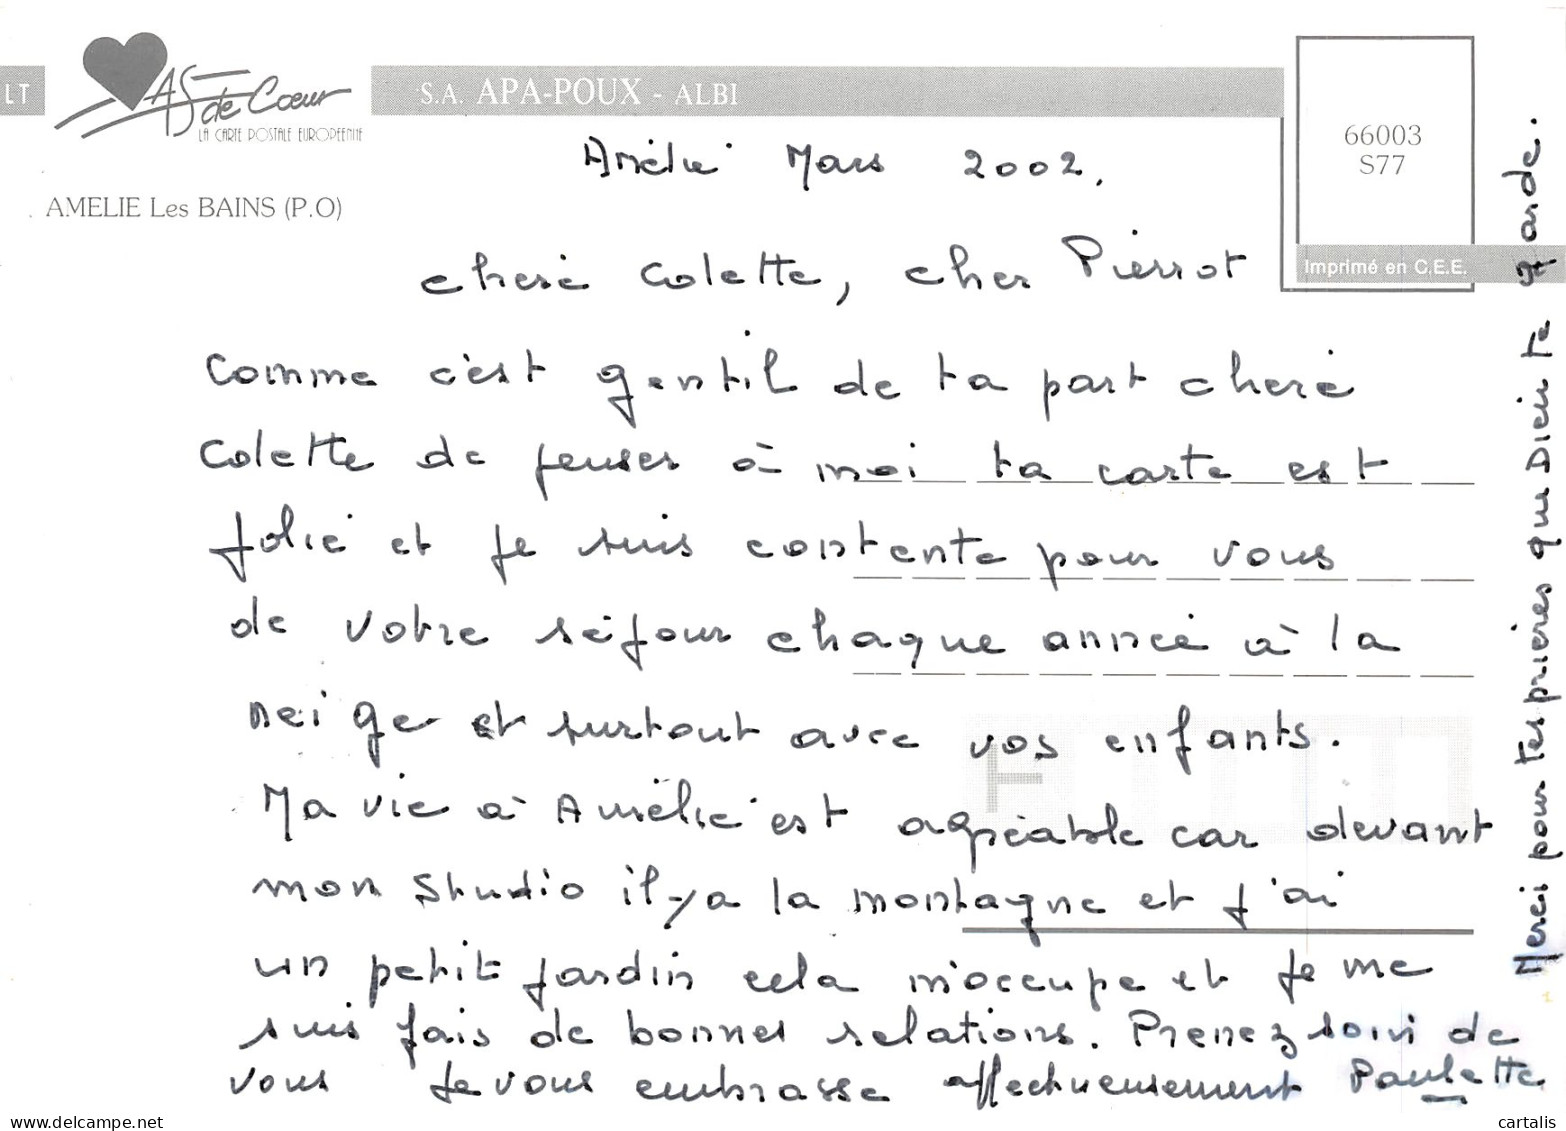 LT
AS de Cœur
LA CARTE POSTALE EUROPEENNE
S.A. APA-POUX - ALBI
66003
S77
Imprimé en C.E.E.
AMELIE Les BAINS (P.O)
Amélie Mars 2002.
cherie Colette, cher Pierrot
Comme c'est gentil de ta part cherie
Colette de penser à moi ta carte est
jolie et je suis contente pour vous
de votre séjour chaque année à la
neige et surtout avec vos enfants.
Ma vie à Amélie est agréable car devant
mon Studio il-y-a la montagne et j'ai
un petit jardin cela m'occupe et je me
suis fais de bonnes relations. Prenez soin de
vous Je vous embrasse affectueusement Paulette
Merci pour tes prières que Dieu te garde.
delcampe.net
cartalis